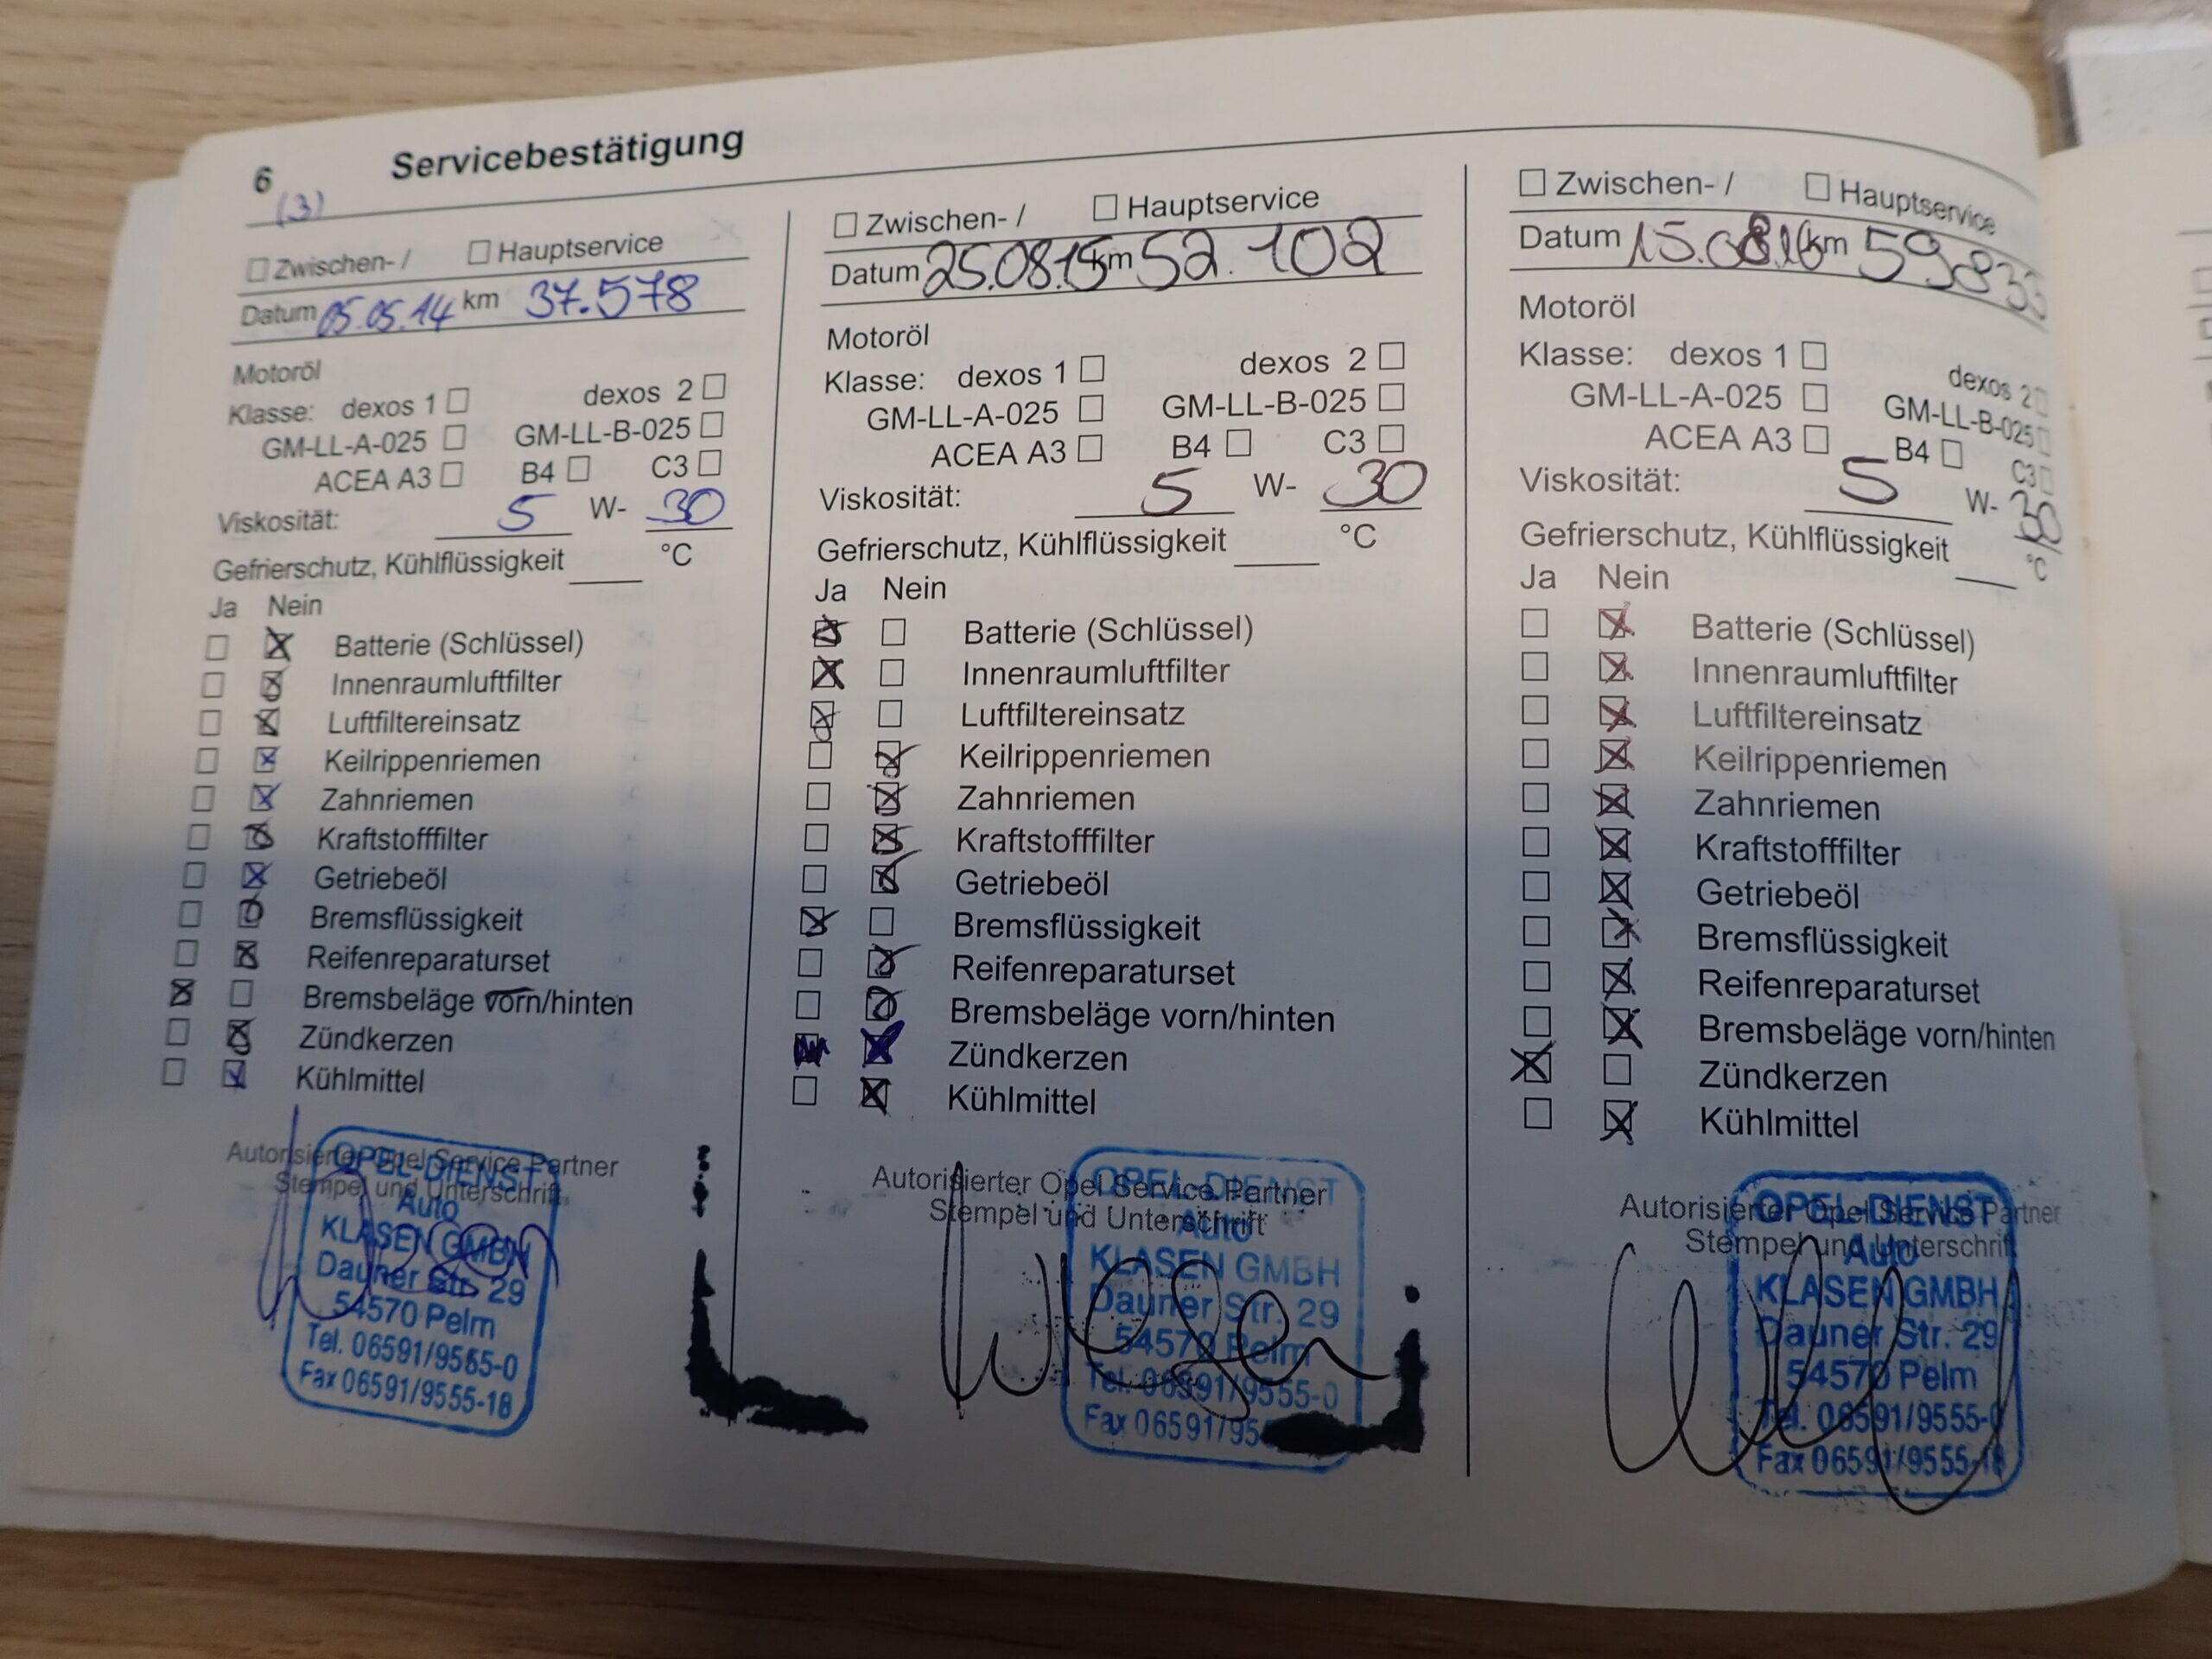 6 Servicebestätigung
(3)
Zwischen- / Hauptservice
Datum 05.05.14 km 37.578
Motoröl
Klasse: dexos 1 dexos 2
GM-LL-A-025 GM-LL-B-025
ACEA A3 B4 C3
Viskosität: 5 W- 30
Gefrierschutz, Kühlflüssigkeit °C
Ja Nein
Batterie (Schlüssel)
Innenraumluftfilter
Luftfiltereinsatz
Keilrippenriemen
Zahnriemen
Kraftstofffilter
Getriebeöl
Bremsflüssigkeit
Reifenreparaturset
Bremsbeläge vorn/hinten
Zündkerzen
Kühlmittel
Autorisierter Opel Service Partner
Stempel und Unterschrift
OPEL-DIENST
Auto
KLASEN GMBH
Dauner Str. 29
54570 Pelm
Tel. 06591/9555-0
Fax 06591/9555-18
Zwischen- / Hauptservice
Datum 25.08.15 km 52.102
Motoröl
Klasse: dexos 1 dexos 2
GM-LL-A-025 GM-LL-B-025
ACEA A3 B4 C3
Viskosität: 5 W- 30
Gefrierschutz, Kühlflüssigkeit °C
Ja Nein
Batterie (Schlüssel)
Innenraumluftfilter
Luftfiltereinsatz
Keilrippenriemen
Zahnriemen
Kraftstofffilter
Getriebeöl
Bremsflüssigkeit
Reifenreparaturset
Bremsbeläge vorn/hinten
Zündkerzen
Kühlmittel
Autorisierter Opel Service Partner
Stempel und Unterschrift
OPEL-DIENST
Auto
KLASEN GMBH
Dauner Str. 29
54570 Pelm
Tel. 06591/9555-0
Fax 06591/95
Zwischen- / Hauptservice
Datum 15.08.16 km 59.833
Motoröl
Klasse: dexos 1 dexos 2
GM-LL-A-025 GM-LL-B-025
ACEA A3 B4 C3
Viskosität: 5 W- 30
Gefrierschutz, Kühlflüssigkeit °C
Ja Nein
Batterie (Schlüssel)
Innenraumluftfilter
Luftfiltereinsatz
Keilrippenriemen
Zahnriemen
Kraftstofffilter
Getriebeöl
Bremsflüssigkeit
Reifenreparaturset
Bremsbeläge vorn/hinten
Zündkerzen
Kühlmittel
Autorisierter Opel Service Partner
Stempel und Unterschrift
OPEL-DIENST
Auto
KLASEN GMBH
Dauner Str. 29
54570 Pelm
Tel. 06591/9555-0
Fax 06591/9555-18